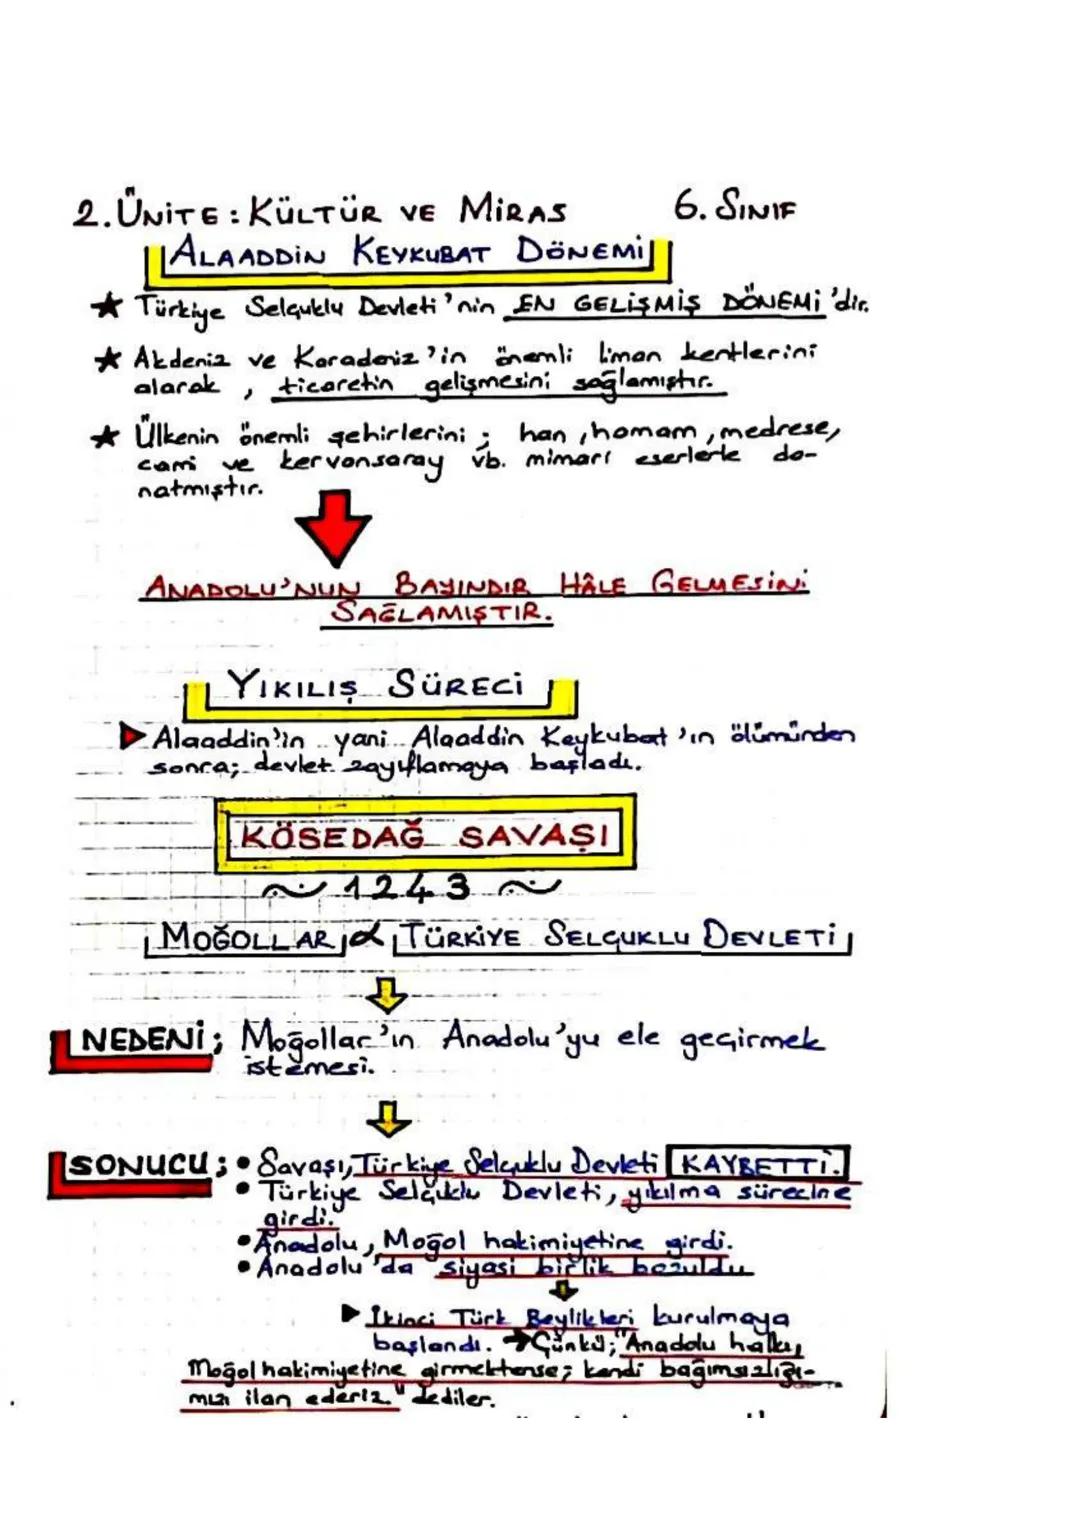 2. ÜNİTE: KÜLTÜR VE MİRAS 6. SINIF
ALAADDİN KEYKUBAT DÖNEMİ
★ Türkiye Selçuklu Devleti'nin EN GELİŞMİŞ DÖNEMİ'dir.
★ Akdeniz ve Karadeniz'in önemli liman kentlerini
alarak, ticaretin gelişmesini sağlamıştır.
★ Ülkenin önemli şehirlerini; han, hamam, medrese,
cami ve kervansaray vb. mimari eserlerle do-
natmıştır.
ANADOLU'NUN BAYINDIR HÂLE GELMESİNİ
SAĞLAMIŞTIR.
YIKILIŞ SÜRECİ
Alaaddin'in yani Alaaddin Keykubat'ın ölümünden
sonra; devlet zayıflamaya başladı.
KÖSEDAĞ SAVAŞI
~ 1243 ~
MOĞOLLAR α TÜRKİYE SELÇUKLU DEVLETİ
NEDENİ; Moğollar'ın Anadolu'yu ele geçirmek
istemesi.
SONUCU; • Savaşı, Türkiye Selçuklu Devleti KAYBETTİ.
• Türkiye Selçuklu Devleti, yıkılma sürecine
girdi.
• Anadolu, Moğol hakimiyetine girdi.
• Anadolu'da siyasi birlik bozuldu
İkinci Türk Beylikleri kurulmaya
başlandı. → Çünkü; "Anadolu halkı,
Moğol hakimiyetine girmektense; kendi bağımsızlığı-
mızı ilan ederiz." dediler.